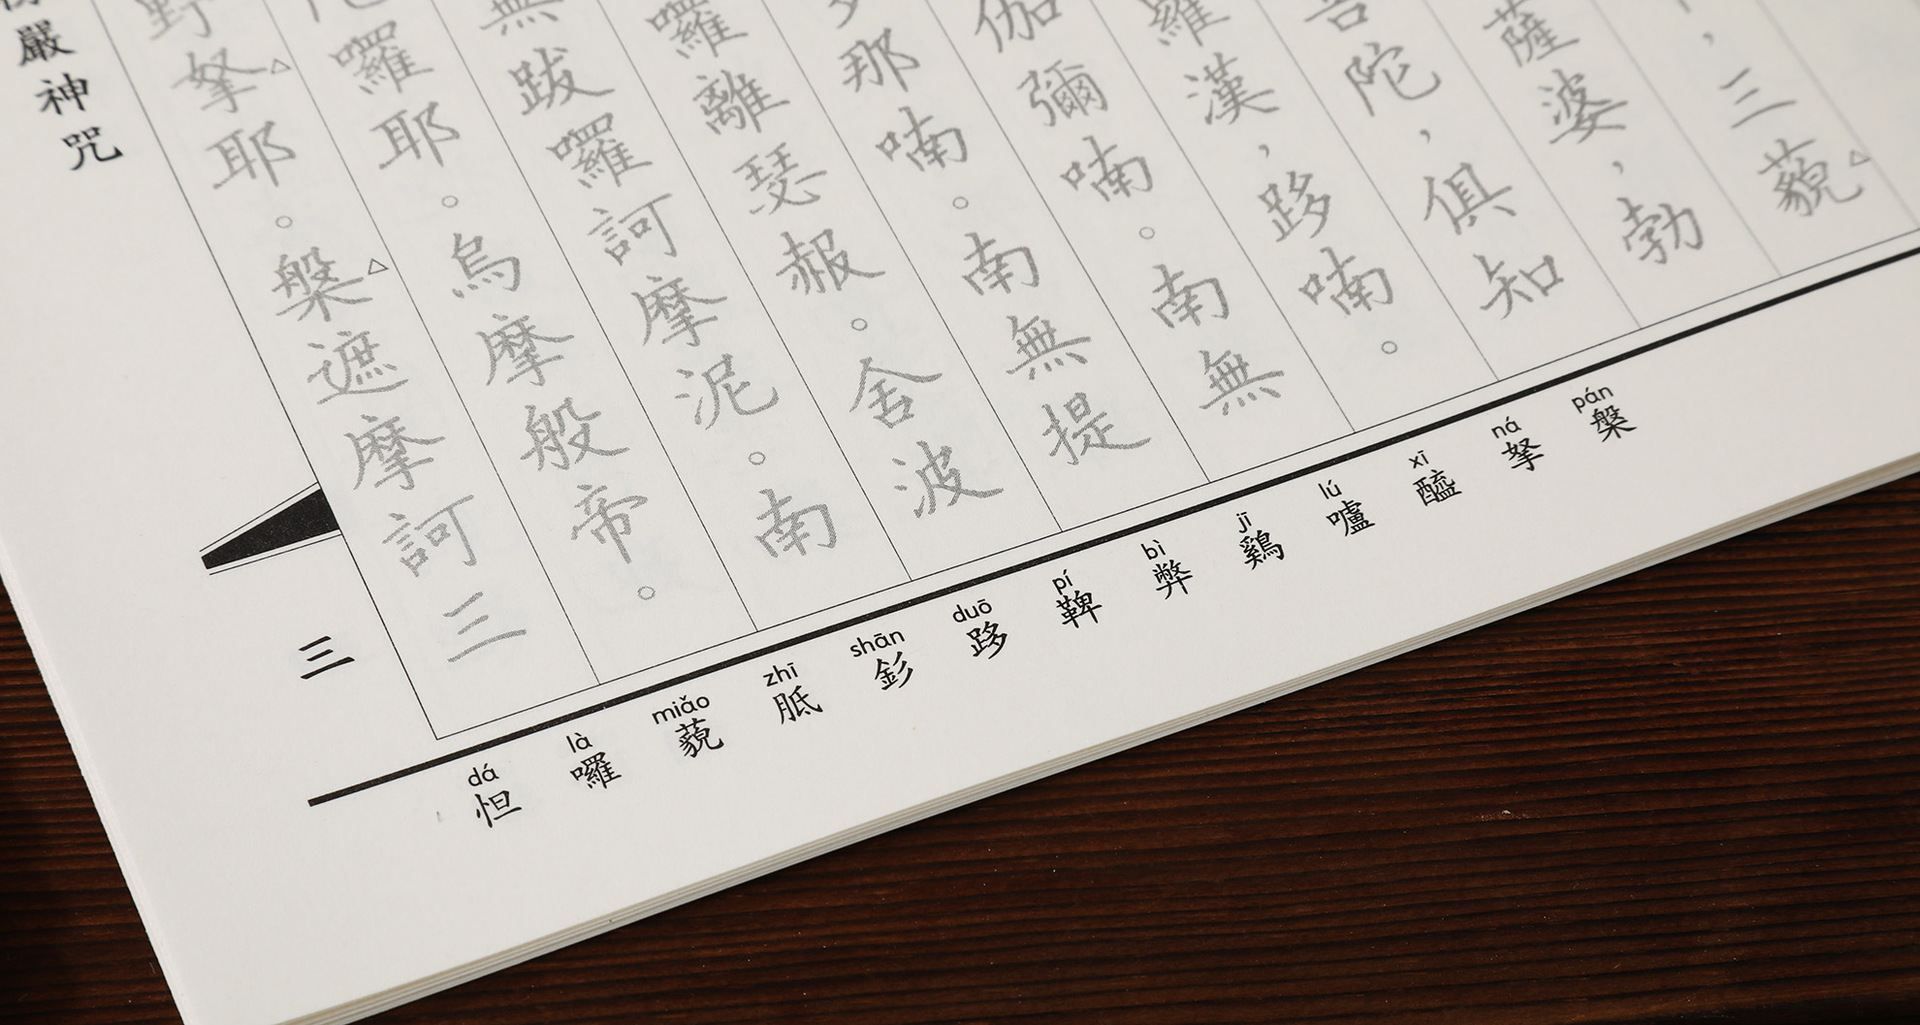 ，三藐
薩婆，勃
陀，俱知
羅漢，跢喃。
伽彌喃。南無
那喃。南無提
囉離瑟赧。舍波
無跋囉訶摩泥。南
囉耶。烏摩般帝。
野拏耶。槃遮摩訶三
嚴神咒
三
pán 槃
ná 拏
xī 醯
lú 嚧
jī 鷄
bì 弊
pí 鞞
duō 跢
shān 釤
zhī 胝
miǎo 藐
là 囉
dá 怛